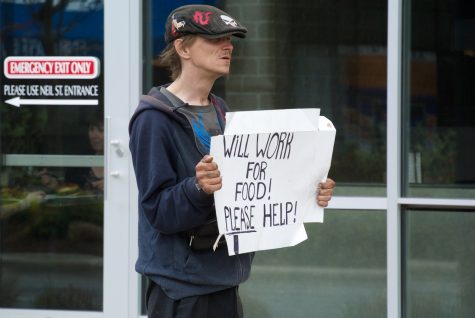 EMERGENCY EXIT ONLY
PLEASE USE NEIL ST. ENTRANCE
WILL WORK
FOR
FOOD!
PLEASE HELP!